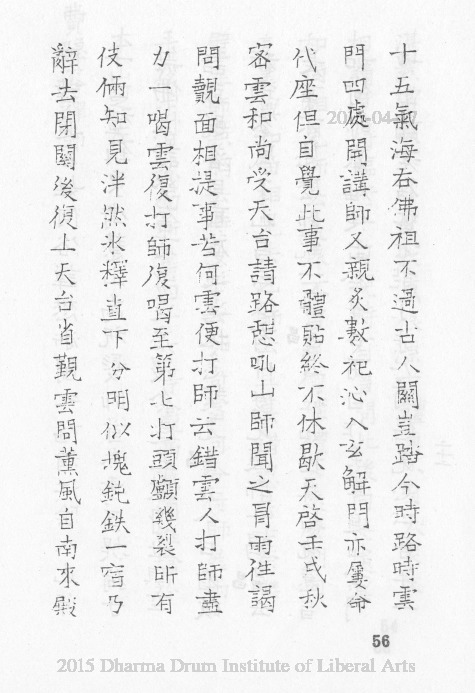 十五氣海吞佛祖不過古人關豈踏今時路時雲
門四處開講師又親炙數祀沁入玄解門亦屢命
代座但自覺此事不體貼終不休歇天啓壬戌秋
密雲和尚受天台請路憩吼山師聞之冐雨徃謁
問覿面相提事若何雲便打師云錯雲又打師盡
力一喝雲復打師復喝至第七打頭顱幾裂所有
伎倆知見泮然氷釋直下分明似塊鈍鉄一宿乃
辭去閉關後復上天台省覲雲問薰風自南來殿
56
2015 Dharma Drum Institute of Liberal Arts